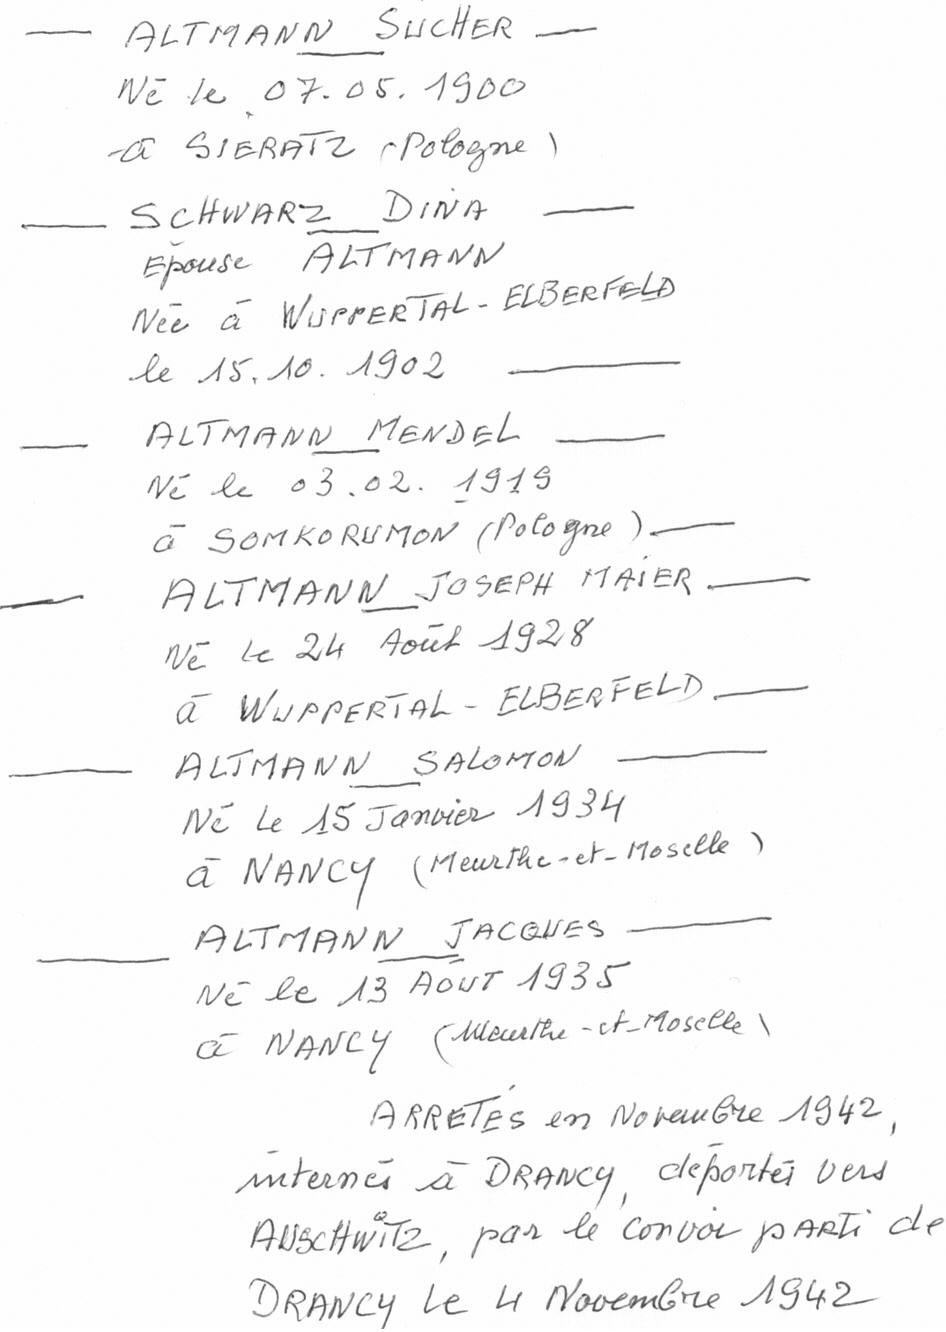 — ALTMANN SUCHER —
Né le 07.05.1900
à SIERATZ (Pologne)
— SCHWARZ DINA —
Epouse ALTMANN
Née à WUPPERTAL-ELBERFELD
le 15.10.1902 —
— ALTMANN MENDEL —
Né le 03.02.1919
à SOMKORUMON (Pologne).—
— ALTMANN JOSEPH MAIER.—
Né le 24 Août 1928
à WUPPERTAL-ELBERFELD.—
— ALTMANN SALOMON —
Né le 15 Janvier 1934
à NANCY (Meurthe-et-Moselle)
— ALTMANN JACQUES —
Né le 13 AOUT 1935
à NANCY (Meurthe-et-Moselle)
ARRETÉS en Novembre 1942,
internés à DRANCY, déportés vers
AUSCHWITZ, par le convoi PARTi de
DRANCY le 4 Novembre 1942